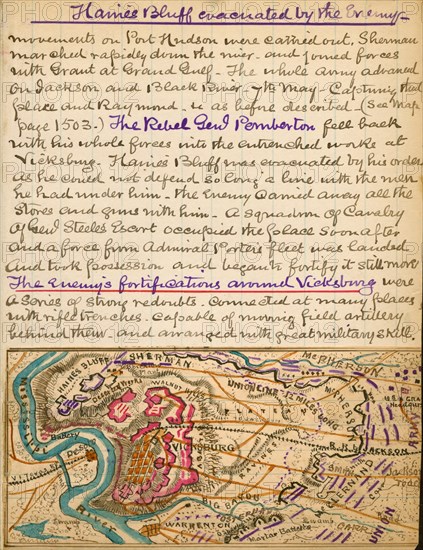 Haines Bluff evacuated by the Enemy—
movements on Port Hudson were carried out, Sherman
marched rapidly down the river - and joined forces
with Grant at Grand Gulf - The whole army advanced
on Jackson and Black River 7th May - Capturing that
place and Raymond. as before described - (See Map
page 1503.) The Rebel Genl Pemberton fell back
with his whole forces into the entrenched works at
Vicksburg. Haines Bluff was evacuated by his order
as he could not defend so long a line with the men
he had under him - the Enemy carried away all the
stores and guns with him - A squadron of Cavalry
of Genl Steeles Escort occupied the place soon after
and a force from Admiral Porters fleet was landed
and took possession and began to fortify it still more
The Enemy's fortifications around Vicksburg were
a series of strong redoubts connected at many places
with rifle trenches capable of moving field artillery
behind them - and arranged with great military skill.
HAINES BLUFF
SHERMAN
McPHERSON
WALNUT HILLS
UNION LINE
MILES LONG
MISSISSIPPI
Battery
VICKSBURG
JACKSON
ROAD
ARMY
UNION
CARR
BIG BAYOU
WARRENTON
Mortar Battery
River